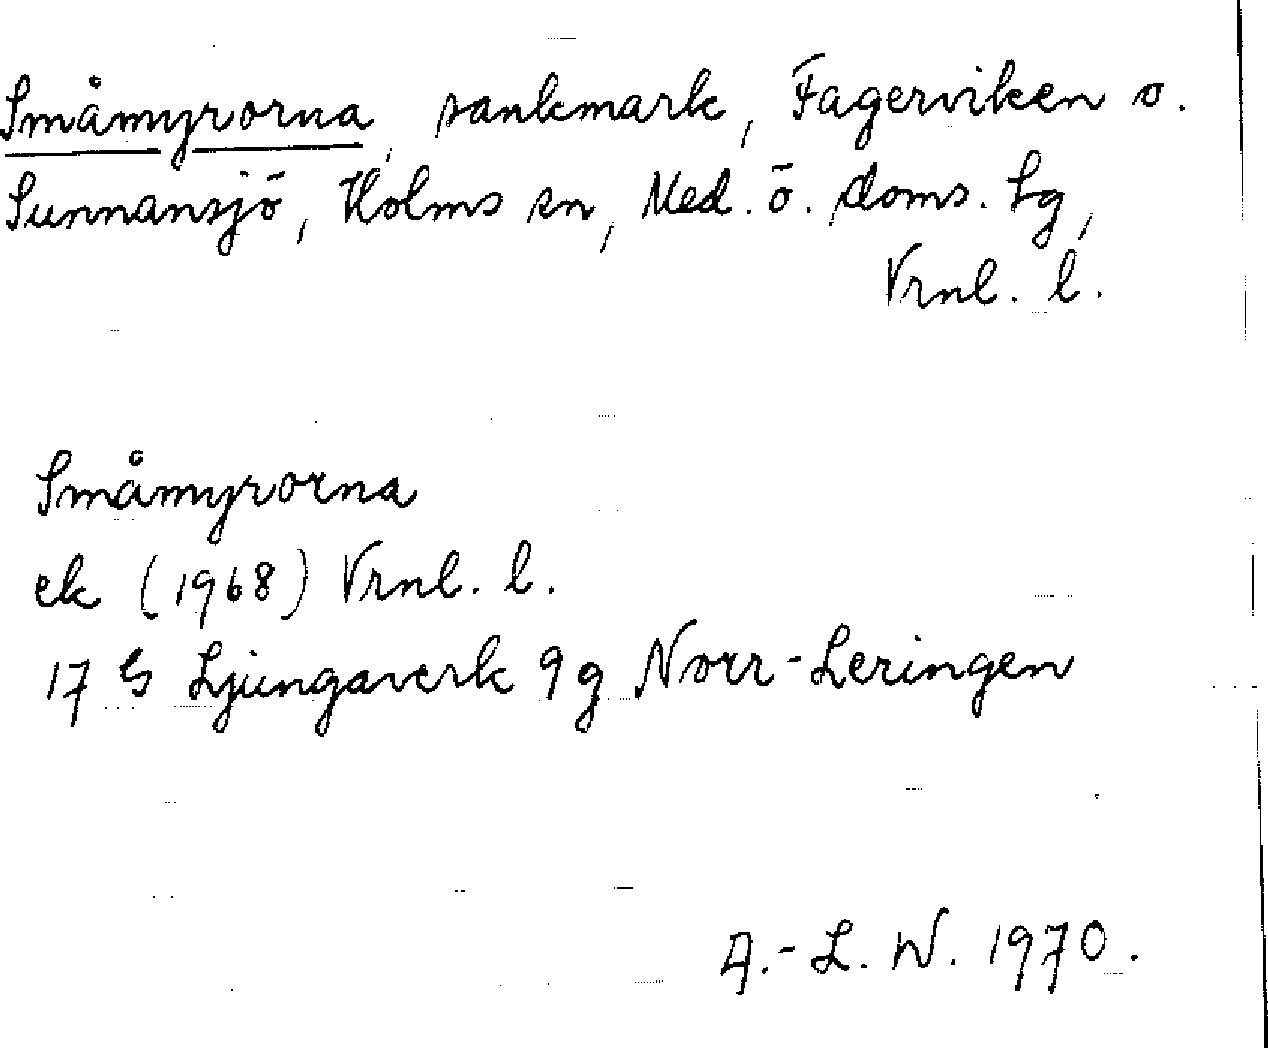 Småmyrorna, sankmark, Fagerviken o.
Sunnansjö, Holms sn, Med. ö. doms. lg,
Vrnl. l.
Småmyrorna
ek (1968) Vrnl. l.
17 G Ljungaverk 9 g Norr-Leringen
A.-L. W. 1970.